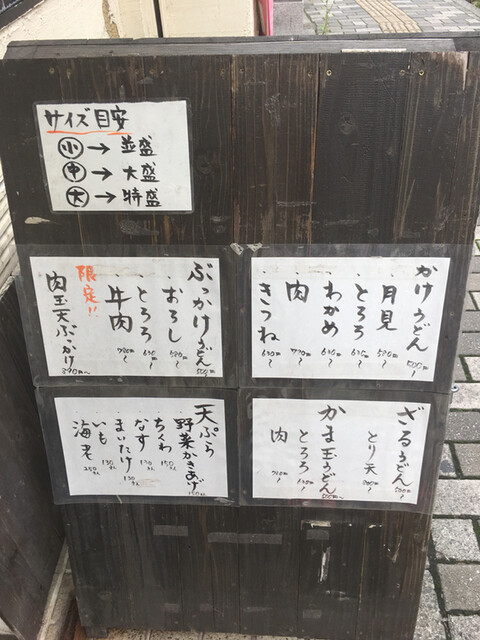 サイズ目安
小→並盛
中→大盛
大→特盛
かけうどん 500円〜
月見 580円〜
とろろ 630円〜
わかめ 630円〜
肉 770円〜
きつね 630円〜
ぶっかけうどん 500円〜
おろし 580円〜
とろろ 630円〜
牛肉 780円〜
限定!!
肉玉天ぶっかけ
ざるうどん 500円〜
とり天
かま玉うどん
とろろ
肉
天ぷら
野菜かきあげ 150円
ちくわ 150円
なす
まいたけ 130円
いも 130円
海老 250円